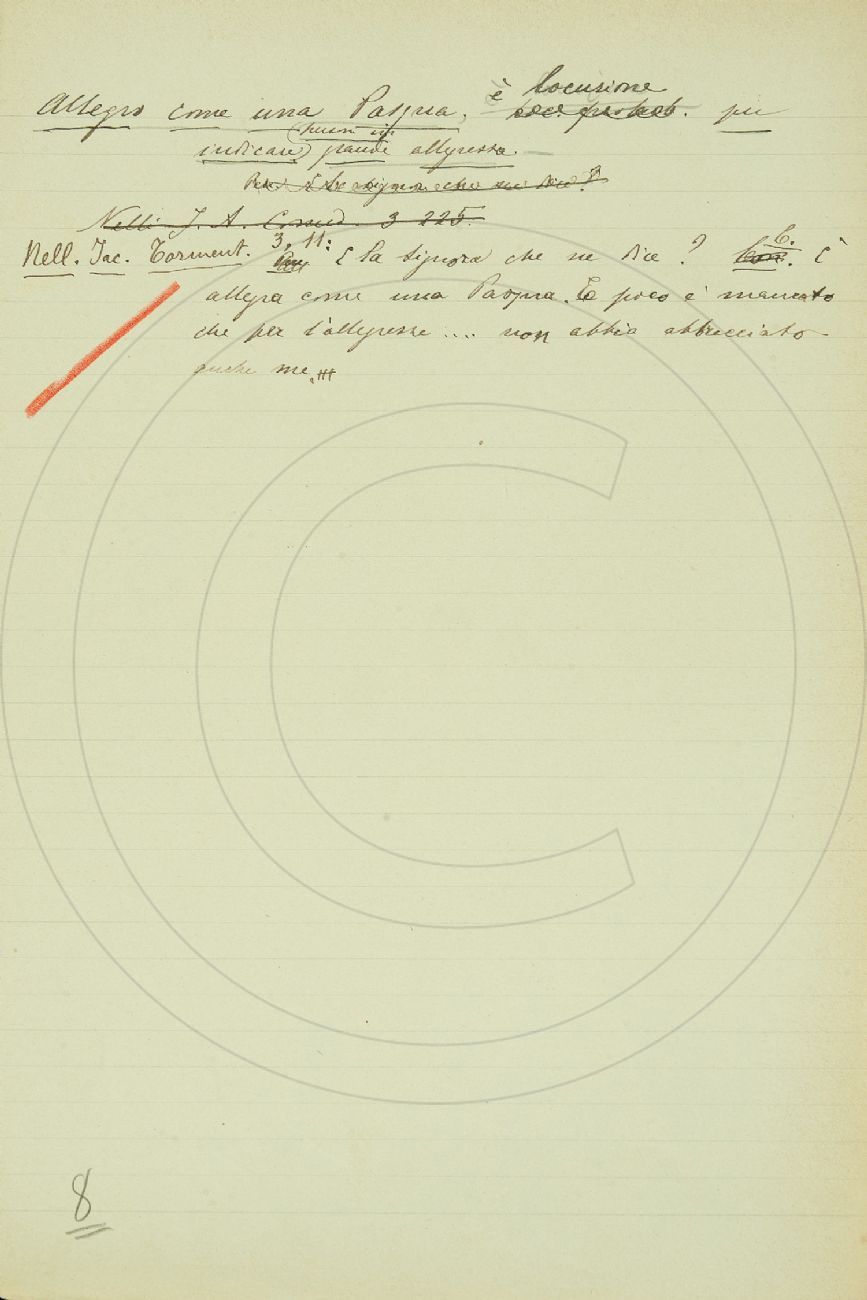 Allegro come una Pasqua, è locuzione per
indicare grande allegrezza.
E la signora che ne dice?
Nelli J. A. Comed. 3 225.
Nell. Jac. Torment. 3, 11: E la signora che ne dice? C. È
allegra come una Pasqua. E poco è mancato
che per l'allegrezza .... non abbia abbracciato
anche me.
8